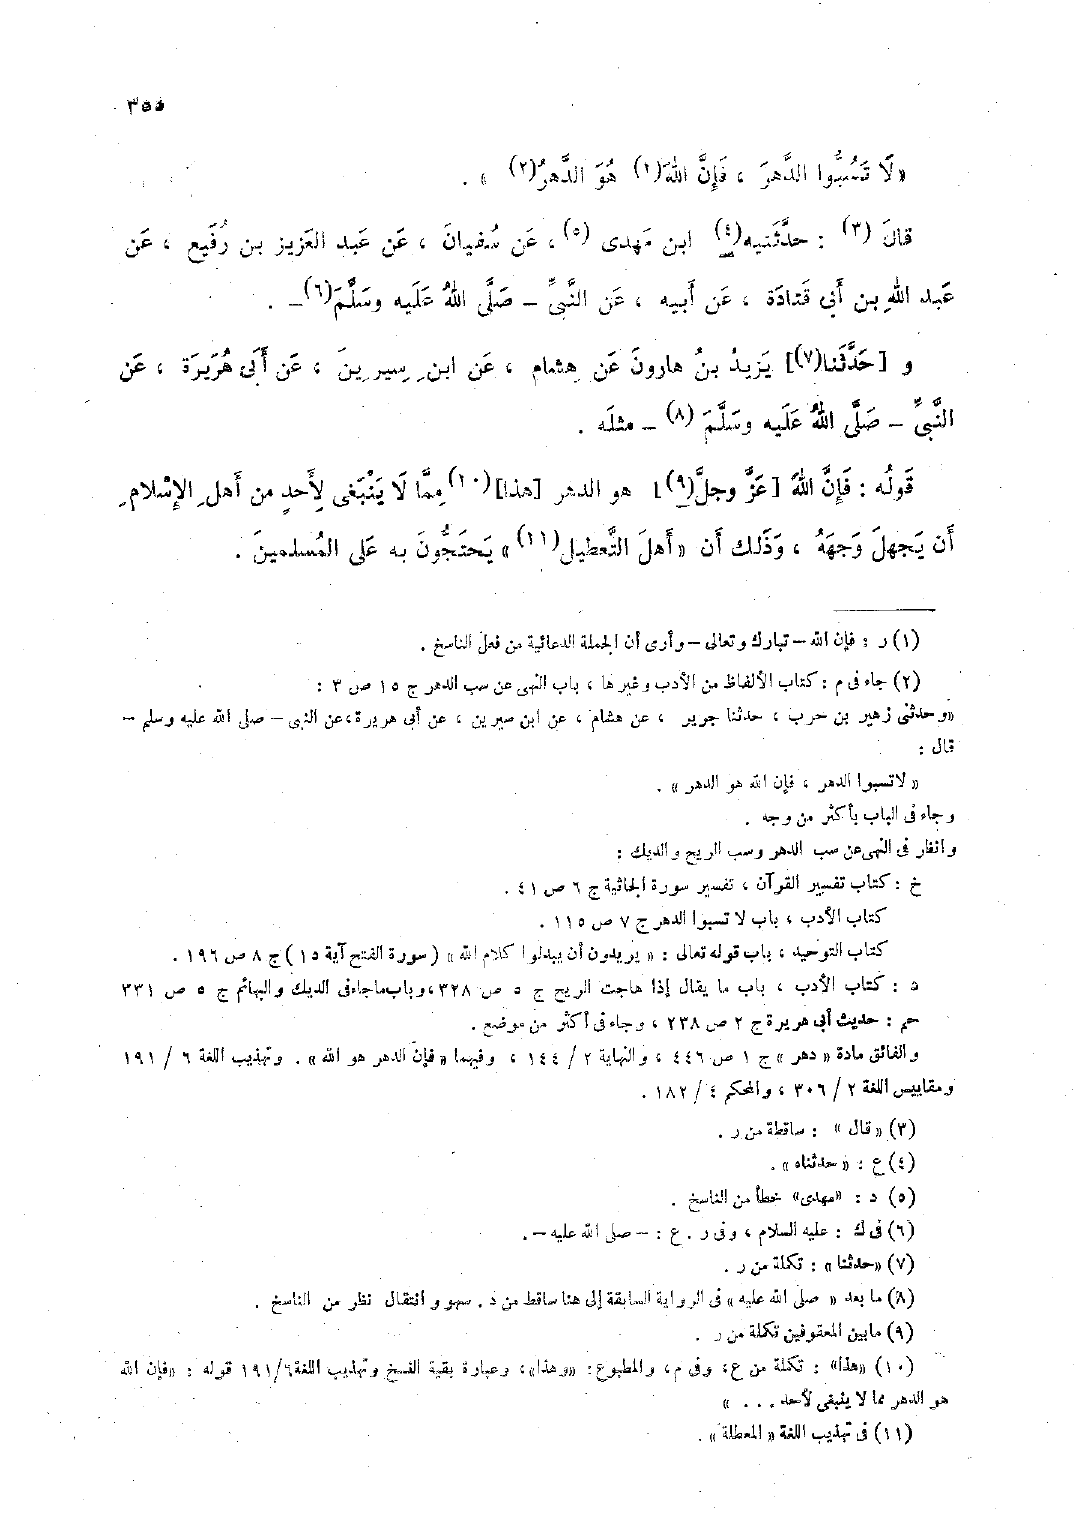 ٣٥٥
«لَا تَسُبُّوا الدَّهرَ ، فَإِنَّ اللهَ(١) هُوَ الدَّهرُ(٢) » .
قالَ (٣) : حدَّثَنيه(٤) ابن مَهدى (٥) ، عَن سُفيانَ ، عَن عَبد العَزيز بن رُفَيع ، عَن
عَبد اللهِ بن أَبى قَتادَة ، عَن أَبيه ، عَن النَّبىِّ – صَلَّى اللهُ عَلَيه وسَلَّمَ(٦)– .
و [حَدَّثَنا(٧)] يَزيدُ بنُ هارونَ عَن هِشام ، عَن ابنِ سِيرِينَ ، عَن أَبى هُرَيرَة ، عَن
النَّبىِّ – صَلَّى اللهُ عَلَيه وسَلَّمَ (٨) – مثلَه .
قَولُه : فَإِنَّ اللهَ [عَزَّ وجلَّ(٩)] هو الدهر [هذا](١٠) مِمَّا لَا يَنْبَغى لِأَحدٍ من أَهلِ الإِسْلامِ
أَن يَجهلَ وَجهَهُ ، وَذَلك أَن «أَهلَ التَّعطيل(١١)» يَحتَجُّونَ به عَلى المُسلمينَ .
(١) ر : فإن الله – تبارك وتعالى – وأرى أن الجملة الدعائية من فعل الناسخ .
(٢) جاء فى م : كتاب الألفاظ من الأدب وغيرها ، باب النهى عن سب الدهر ج ١٥ ص ٣ :
«وحدثنى زهير بن حرب ، حدثنا جرير ، عن هشام ، عن ابن سيرين ، عن أبى هريرة ، عن النبى – صلى الله عليه وسلم –
قال :
« لا تسبوا الدهر ، فإن الله هو الدهر » .
وجاء فى الباب بأكثر من وجه .
وانظر فى النهى عن سب الدهر وسب الريح والديك :
خ : كتاب تفسير القرآن ، تفسير سورة الجاثية ج ٦ ص ٤١ .
كتاب الأدب ، باب لا تسبوا الدهر ج ٧ ص ١١٥ .
كتاب التوحيد ، باب قوله تعالى : « يريدون أن يبدلوا كلام الله » (سورة الفتح آية ١٥) ج ٨ ص ١٩٦ .
د : كتاب الأدب ، باب ما يقال إذا هاجت الريح ج ٥ ص ٣٢٨ ، وباب ماجاء فى الديك والبهائم ج ٥ ص ٣٣١
حم : حديث أبى هريرة ج ٢ ص ٢٣٨ ، وجاء فى أكثر من موضع .
والفائق مادة « دهر » ج ١ ص ٤٤٦ ، والنهاية ٢ / ١٤٤ ، وفيهما « فإن الدهر هو الله » . وتهذيب اللغة ٦ / ١٩١
ومقاييس اللغة ٢ / ٣٠٦ ، والمحكم ٤ / ١٨٢ .
(٣) « قال » : ساقطة من ر .
(٤) ع : « حدثناه » .
(٥) د : «مهدى» خطأ من الناسخ .
(٦) فى ك : عليه السلام ، وفى ر . ع : – صلى الله عليه – .
(٧) «حدثنا » : تكملة من ر .
(٨) ما بعد « صلى الله عليه » فى الرواية السابقة إلى هنا ساقط من د . سهو وانتقال نظر من الناسخ .
(٩) مابين المعقوفين تكملة من ر .
(١٠) «هذا» : تكملة من ع ، وفى م ، والمطبوع : «وهذا» ، وعبارة بقية النسخ وتهذيب اللغة ١٩١/٦ قوله : «فإن الله
هو الدهر مما لا ينبغى لأحد . . . »
(١١) فى تهذيب اللغة « المعطلة » .